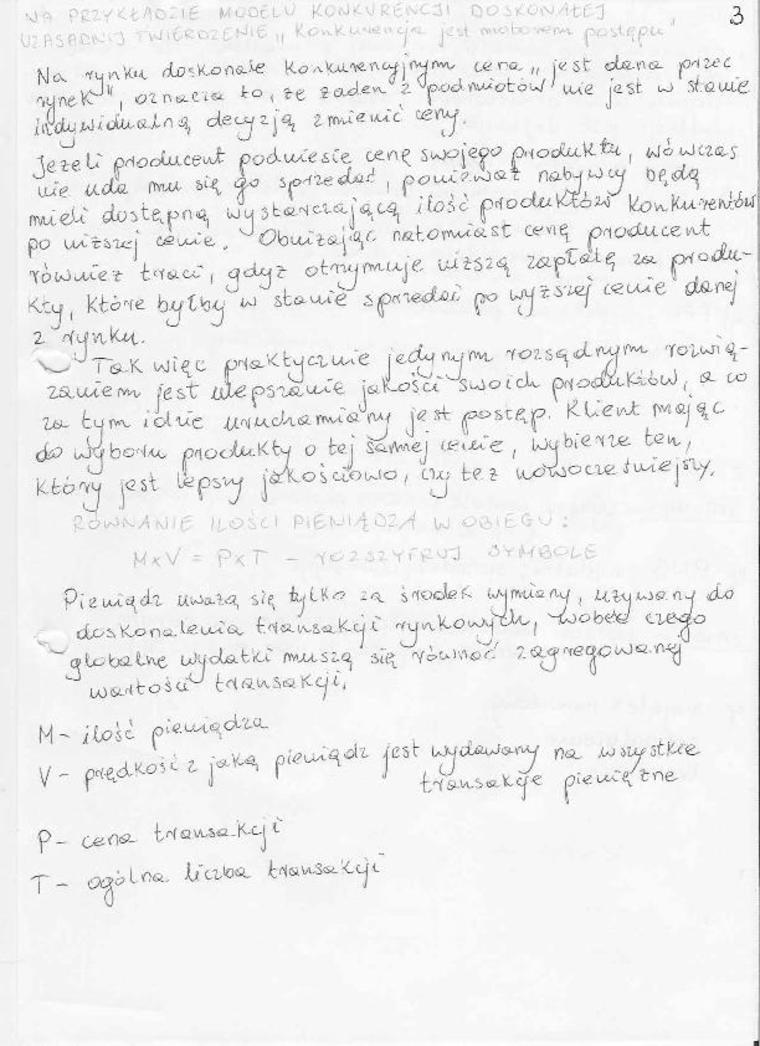 3
NA PRZYKŁADZIE MODELU KONKURENCJI DOSKONAŁEJ
UZASADNIJ TWIERDZENIE „Konkurencja jest motorem postępu"
Na rynku doskonale konkurencyjnym cena „jest dana przez
rynek", oznacza to, że żaden z podmiotów nie jest w stanie
indywidualną decyzją zmienić ceny.
Jeżeli producent podniesie cenę swojego produktu, wówczas
nie uda mu się go sprzedać, ponieważ nabywcy będą
mieli dostępną wystarczającą ilość produktów konkurentów
po niższej cenie. Obniżając natomiast cenę producent
również traci, gdyż otrzymuje niższą zapłatę za produ-
kty, które byłby w stanie sprzedać po wyższej cenie danej
z rynku.
Tak więc praktycznie jedynym rozsądnym rozwią-
zaniem jest ulepszanie jakości swoich produktów, a co
za tym idzie uruchamiany jest postęp. Klient mając
do wyboru produkty o tej samej cenie, wybierze ten,
który jest lepszy jakościowo, czy też nowocześniejszy.
RÓWNANIE ILOŚCI PIENIĄDZA W OBIEGU:
M×V = P×T – ROZSZYFRUJ SYMBOLE
Pieniądz uważa się tylko za środek wymiany, używany do
doskonalenia transakcji rynkowych, wobec czego
globalne wydatki muszą się równać zagregowanej
wartości transakcji.
M – ilość pieniądza
V – prędkość z jaką pieniądz jest wydawany na wszystkie
transakcje pieniężne
P – cena transakcji
T – ogólna liczba transakcji